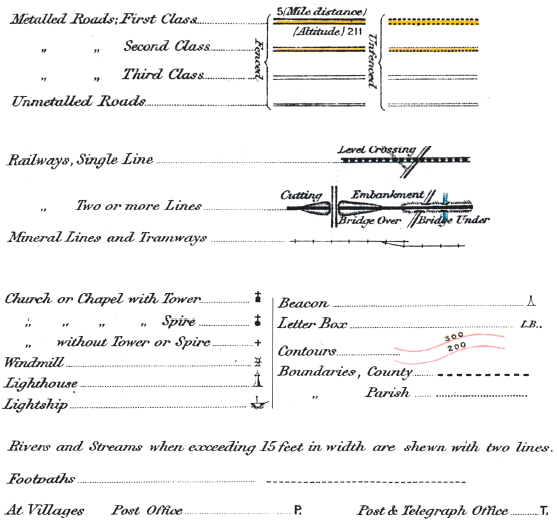 Metalled Roads; First Class 5 (Mile distance)
(Altitude) 211
„ „ Second Class
Fenced
Unfenced
„ „ Third Class
Unmetalled Roads
Level Crossing
Railways, Single Line
Cutting Embankment
„ Two or more Lines
Bridge Over Bridge Under
Mineral Lines and Tramways
Church or Chapel with Tower
„ „ „ „ Spire
„ without Tower or Spire
Windmill
Lighthouse
Lightship
Beacon
Letter Box L.B.
300
Contours 200
Boundaries, County
„ Parish
Rivers and Streams when exceeding 15 feet in width are shewn with two lines.
Footpaths
At Villages Post Office P. Post & Telegraph Office T.